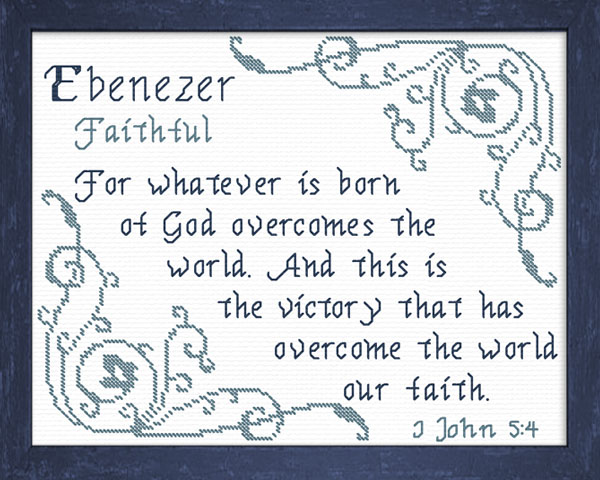 Ebenezer
Faithful
For whatever is born
of God overcomes the
world. And this is
the victory that has
overcome the world
our faith.
I John 5:4